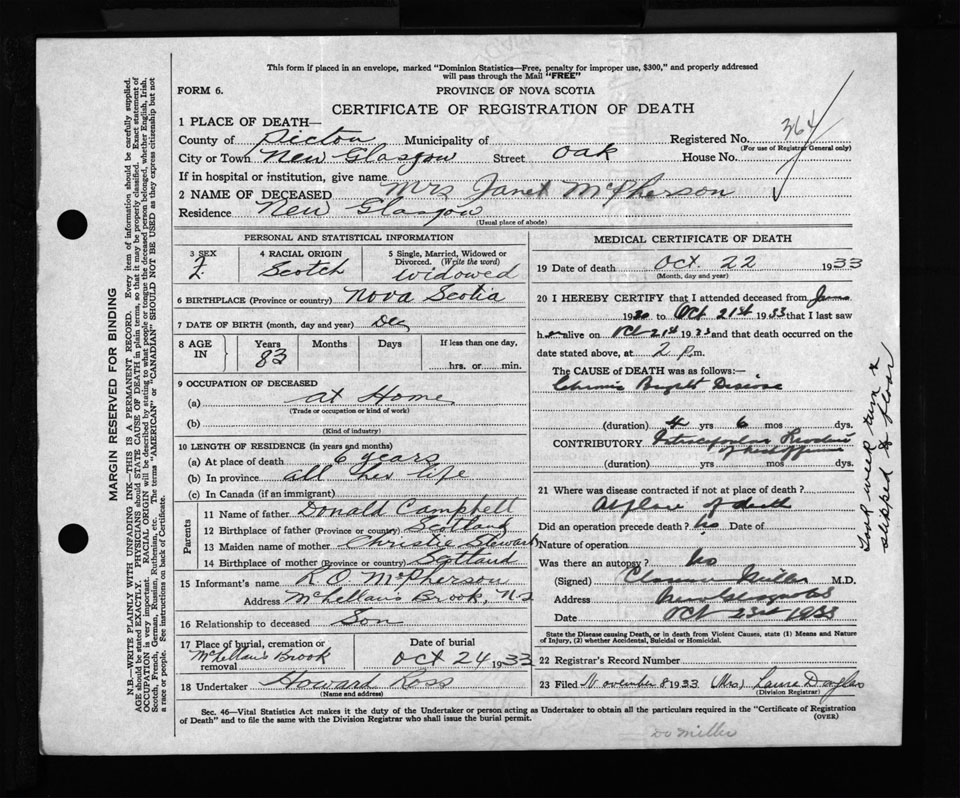 This form if placed in an envelope, marked "Dominion Statistics—Free, penalty for improper use, $300," and properly addressed
will pass through the Mail "FREE"
FORM 6.
PROVINCE OF NOVA SCOTIA
CERTIFICATE OF REGISTRATION OF DEATH
1 PLACE OF DEATH—
County of Pictou Municipality of Registered No. 364
(For use of Registrar General only)
City or Town New Glasgow Street Oak House No.
If in hospital or institution, give name
2 NAME OF DECEASED Mrs Janet McPherson
Residence New Glasgow
(Usual place of abode)
PERSONAL AND STATISTICAL INFORMATION
3 SEX F.
4 RACIAL ORIGIN Scotch
5 Single, Married, Widowed or Divorced. (Write the word) Widowed
6 BIRTHPLACE (Province or country) Nova Scotia
7 DATE OF BIRTH (month, day and year) Dec
8 AGE IN Years Months Days If less than one day,
83 hrs. or min.
9 OCCUPATION OF DECEASED
(a) at Home
(Trade or occupation or kind of work)
(b)
(Kind of industry)
10 LENGTH OF RESIDENCE (in years and months)
(a) At place of death 6 years
(b) In province all her life
(c) In Canada (if an immigrant)
Parents
11 Name of father Donald Campbell
12 Birthplace of father (Province or country) Scotland
13 Maiden name of mother Christie Stewart
14 Birthplace of mother (Province or country) Scotland
15 Informant's name R. O. McPherson
Address McLellan's Brook, N.S
16 Relationship to deceased Son
17 Place of burial, cremation or removal McLellan's Brook
Date of burial Oct 24 1933
18 Undertaker Howard Ross
(Name and address)
MEDICAL CERTIFICATE OF DEATH
19 Date of death Oct 22 1933
(Month, day and year)
20 I HEREBY CERTIFY that I attended deceased from
1930 to Oct 21st 1933 that I last saw
her alive on Oct 21st 1933 and that death occurred on
date stated above, at 2 P.m.
The CAUSE of DEATH was as follows:—
Chronic Bright Disease
(duration) yrs 6 mos dys.
CONTRIBUTORY
(duration) yrs mos dys.
21 Where was disease contracted if not at place of death?
At place of death
Did an operation precede death? No Date of
Nature of operation
Was there an autopsy? No
(Signed) Clarence Miller M.D.
Address New Glasgow NS
Date Oct 23rd 1933
State the Disease causing Death, or in death from Violent Causes, state (1) Means and Nature of Injury, (2) whether Accidental, Suicidal or Homicidal.
22 Registrar's Record Number
23 Filed November 8 1933 (Mrs) Laura Douglas
(Division Registrar)
Sec. 46—Vital Statistics Act makes it the duty of the Undertaker or person acting as Undertaker to obtain all the particulars required in the "Certificate of Registration
of Death" and to file the same with the Division Registrar who shall issue the burial permit.
(OVER)
Dr Miller
Took weak turn &
slipped to floor
MARGIN RESERVED FOR BINDING
N.B.—WRITE PLAINLY WITH UNFADING INK—THIS IS A PERMANENT RECORD. Every item of information should be carefully supplied.
AGE should be stated EXACTLY. PHYSICIANS should STATE CAUSE OF DEATH in plain terms, so that it may be properly classified. Exact statement of
OCCUPATION is very important. RACIAL ORIGIN will be described by stating to what people or tongue the deceased person belonged, whether English, Irish,
Scotch, French, German, Russian, Ruthenian, etc. The terms "AMERICAN" or "CANADIAN" SHOULD NOT BE USED as they express citizenship but not
a race or people. See instructions on back of Certificate.